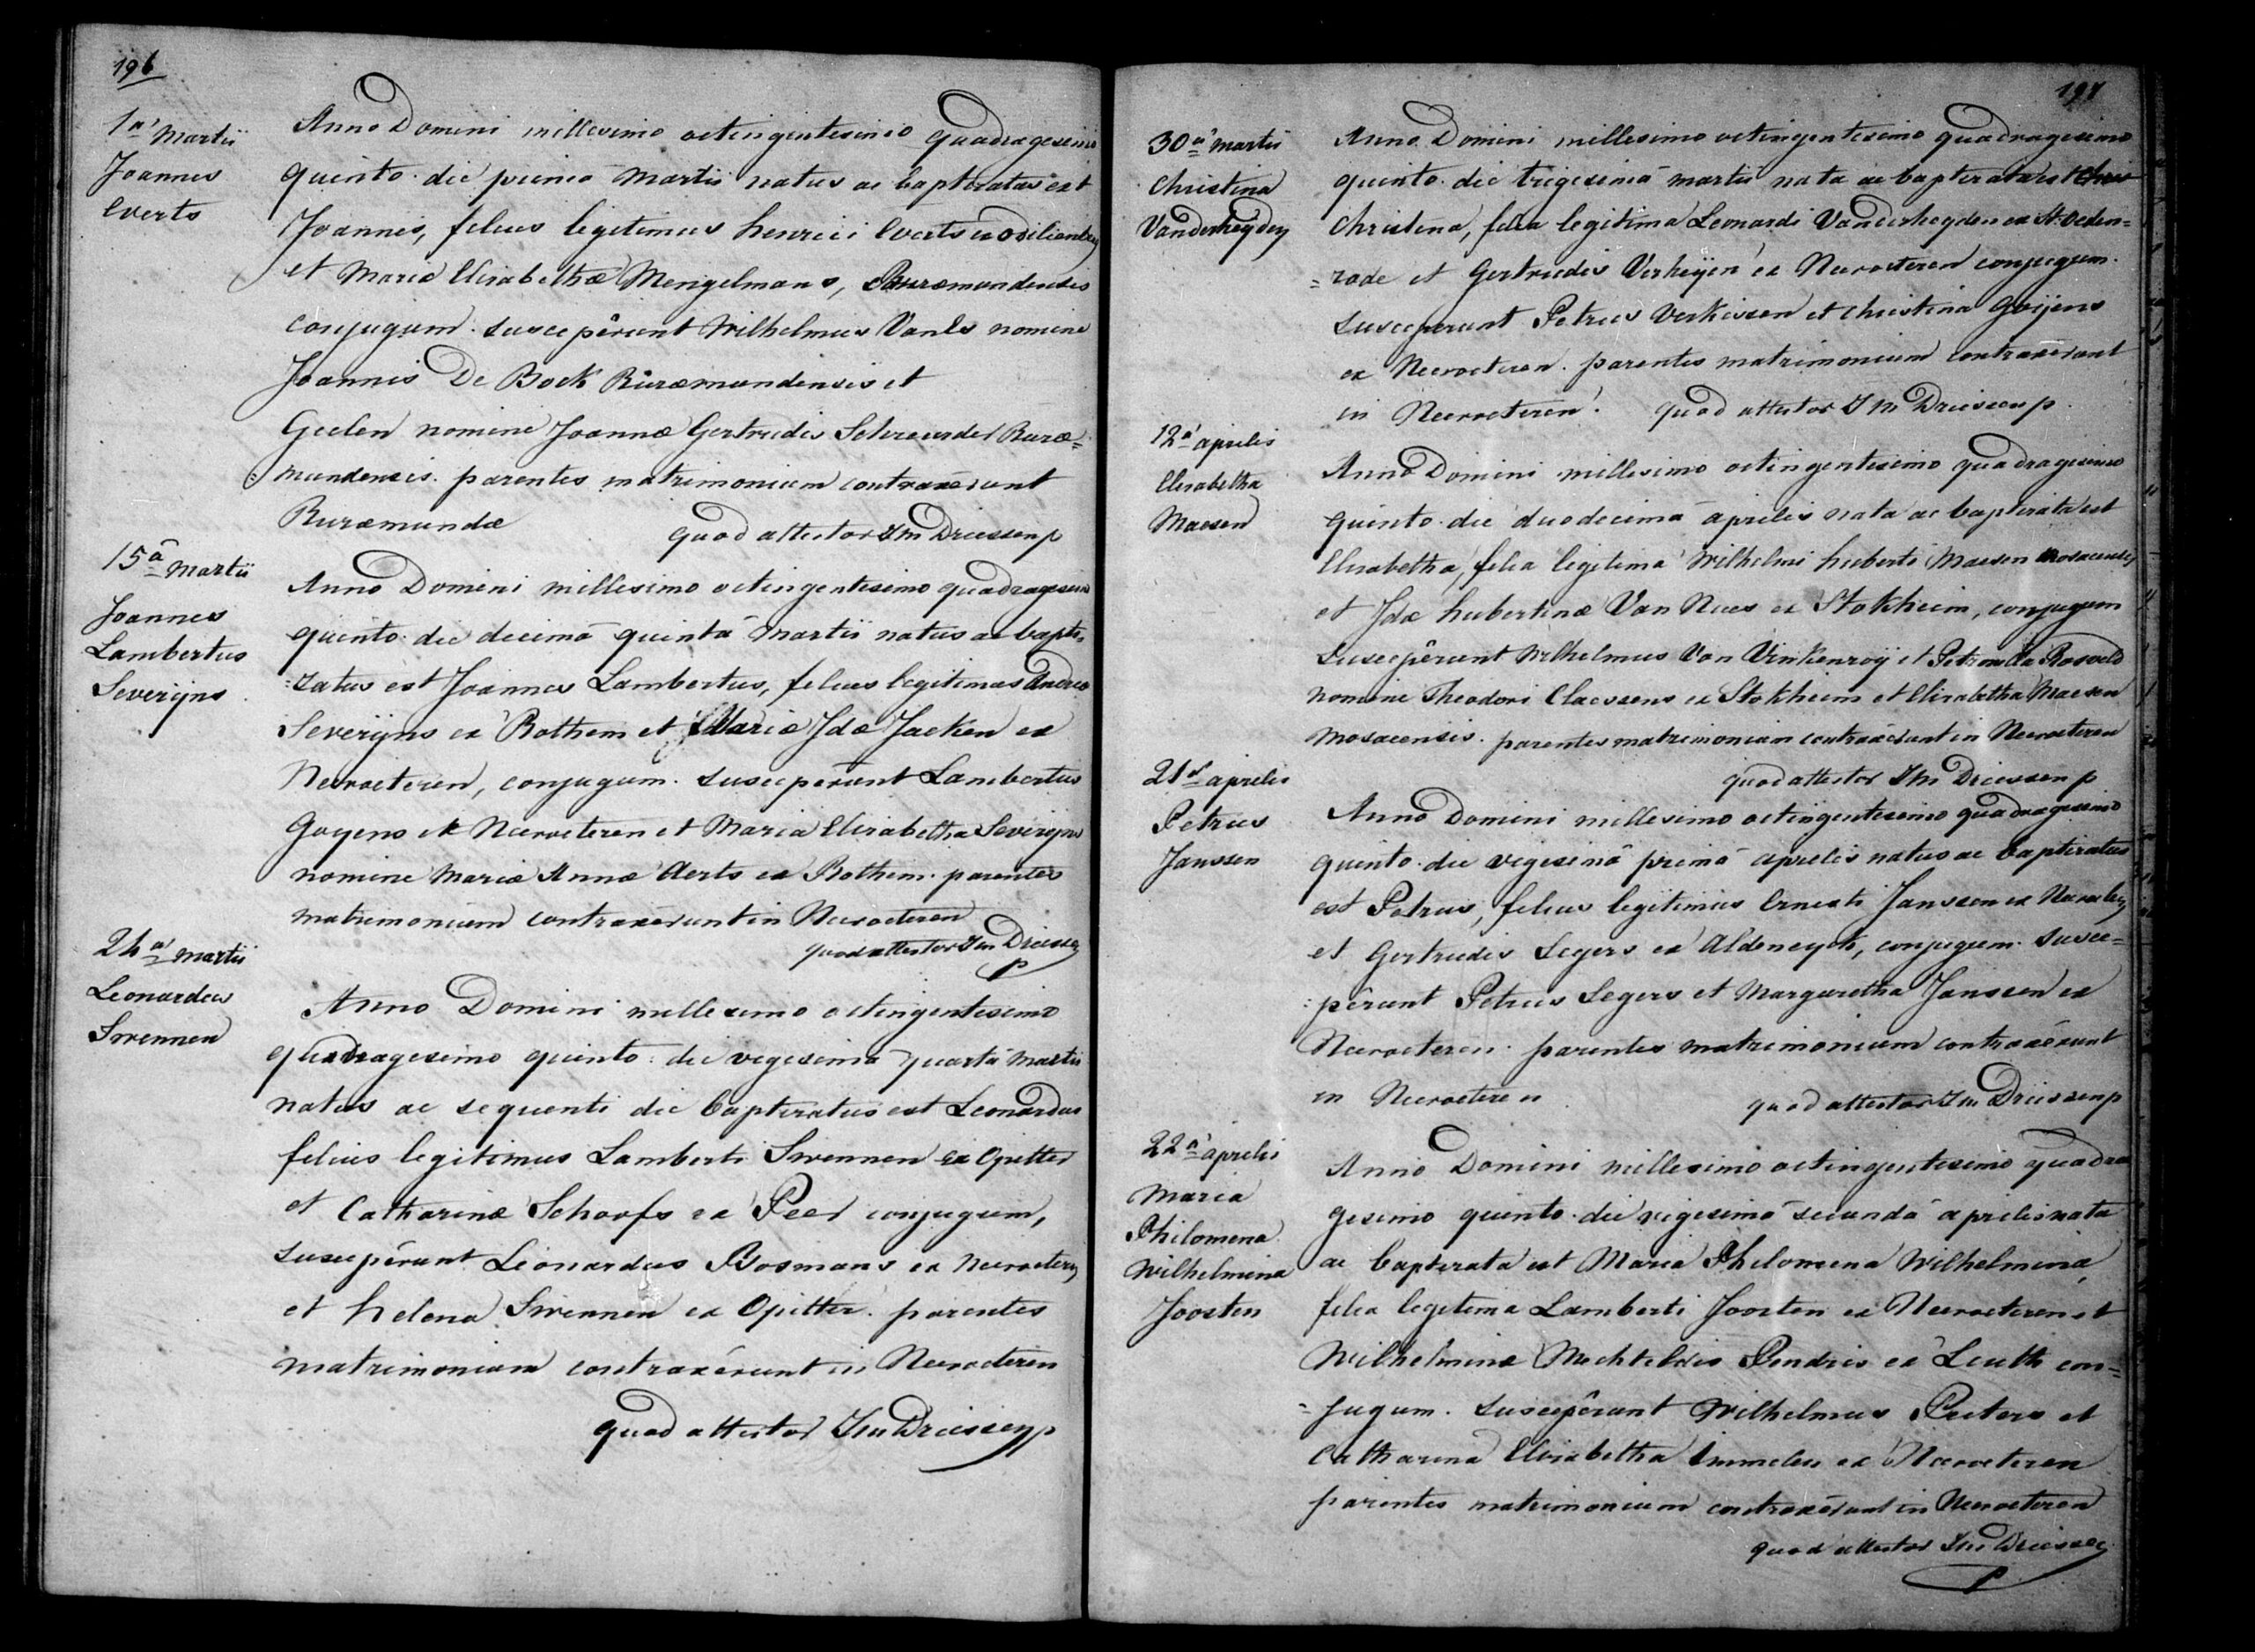 196
1ª Martii
Joannes
Everts
Anno Domini millesimo octingentesimo quadragesimo
quinto. die primâ Martii natus ac baptizatus est
Joannes, filius legitimus henrici Everts ex odilienberg
et Mariæ Elisabethæ Mengelmans, Ruræmundensis
conjugum. suscepêrunt Wilhelmus Vanls nomine
Joannis De Bock Ruræmundensis et
Geelen nomine Joannæ Gertrudis Schreurder Ruræ=
mundensis. parentes matrimonium contraxêrunt
Ruræmundæ quod attestor J m Driessen p
15ª Martii
Joannes
Lambertus
Severijns
Anno Domini millesimo octingentesimo quadragesimo
quinto. die decimâ quintâ Martii natus ac bapti=
=zatus est Joannes Lambertus, filius legitimus Andreæ
Severijns ex Rothem et Mariæ Idæ Jacken ex
Neeroeteren, conjugum. suscepêrunt Lambertus
Goyens ex Neeroeteren et Maria Elisabetha Severijns
nomine Mariæ Annæ Aerts ex Rothem. parentes
matrimonium contraxêrunt in Neeroeteren
quod attestor J m Driessen
p
24ª martii
Leonardus
Swennen
Anno Domini millesimo octingentesimo
quadragesimo quinto. die vigesimâ quartâ Martii
natus ac sequenti die baptizatus est Leonardus
filius legitimus Lamberti Swennen ex Opitter
et Catharinæ Schoofs ex Peer conjugum,
suscepêrunt Leonardus Bosmans ex Neeroeteren
et helena Swennen ex Opitter. parentes
matrimonium contraxêrunt in Neeroeteren
quod attestor J m Driessen p
197
30ª martii
Christina
Vanderheyden
Anno Domini millesimo octingentesimo quadragesimo
quinto. die trigesimâ martii nata ac baptizata est
Christina, filia legitima Leonardi Vanderheyden ex St. Oeden=
=rode et Gertrudis Verheijen ex Neeroeteren conjugum.
suscepêrunt Petrus Verkissen et Christina Goijens
ex Neeroeteren. parentes matrimonium contraxêrunt
in Neeroeteren. quod attestor J m Driessen p.
12ª aprilis
Elisabetha
Maesen
Anno Domini millesimo octingentesimo quadragesimo
quinto. die duodecimâ aprilis nata ac baptizata est
Elisabetha, filia legitima Wilhelmi huberti Maesen Mosacensis
et Idæ hubertinæ Van Nues ex Stokheim, conjugum
suscepêrunt Wilhelmus Van Vinkenroÿ et Petronilla Rosveld
nomine Theodori Claessens ex Stokheim et Elisabetha Maesen
Mosacensis. parentes matrimonium contraxêrunt in Neeroeteren
quod attestor J m Driessen p
21ª aprilis
Petrus
Janssen
Anno Domini millesimo octingentesimo quadragesimo
quinto. die vigesimâ primâ aprilis natus ac baptizatus
est Petrus, filius legitimus Ernesti Janssen ex
et Gertrudis Segers ex Aldeneyck, conjugum. susce=
=pêrunt Petrus Segers et Margaretha Janssen ex
Neeroeteren. parentes matrimonium contraxêrunt
in Neeroeteren quod attestor J m Driessen p
22ª aprilis
Maria
Philomena
Wilhelmina
Joosten
Anno Domini millesimo octingentesimo quadra
gesimo quinto. die vigesimâ secundâ aprilis nata
ac baptizata est Maria Philomena Wilhelmina,
filia legitima Lamberti Joosten ex Neeroeteren et
Wilhelminæ Mechtildis Dendris ex Leuth con=
=jugum. suscepêrunt Wilhelmus Peeters et
Catharina Elisabetha Emmelen ex Neeroeteren
parentes matrimonium contraxêrunt in Neeroeteren
quod attestor J m Driessen
p